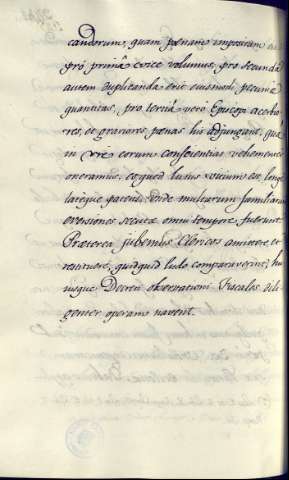 candorum, quam pœnam impositam
pró primâ vice volumus, pro secunda
autem duplicanda erit eiusmodi pecuniæ
quantitas, pro tertiâ veri Episcopi acerbio
res, et graviores pœnas his adjungant, quâ
in re eorum conscientias vehementer
oneramus, eo quod lusus vitium est, long
latèque patens, unde multarum familiarum
eversiones secutæ omni tempore fuerunt
Præterea jubemus Clericos amittere, et
restituere, quidquid ludo comparaverint, hu
iusque Decreti observationi Fiscales dili
genter operam navent.